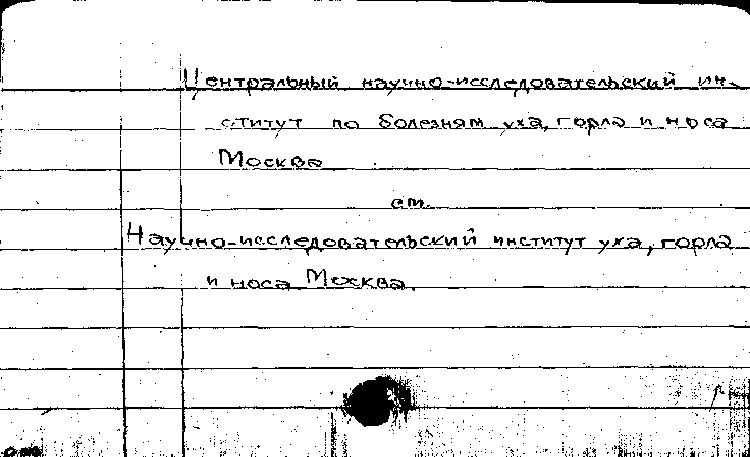 Центральный научно-исследовательский ин-
ститут по болезням уха, горла и носа
Москва
см.
Научно-исследовательский институт уха, горла
и носа Москва.